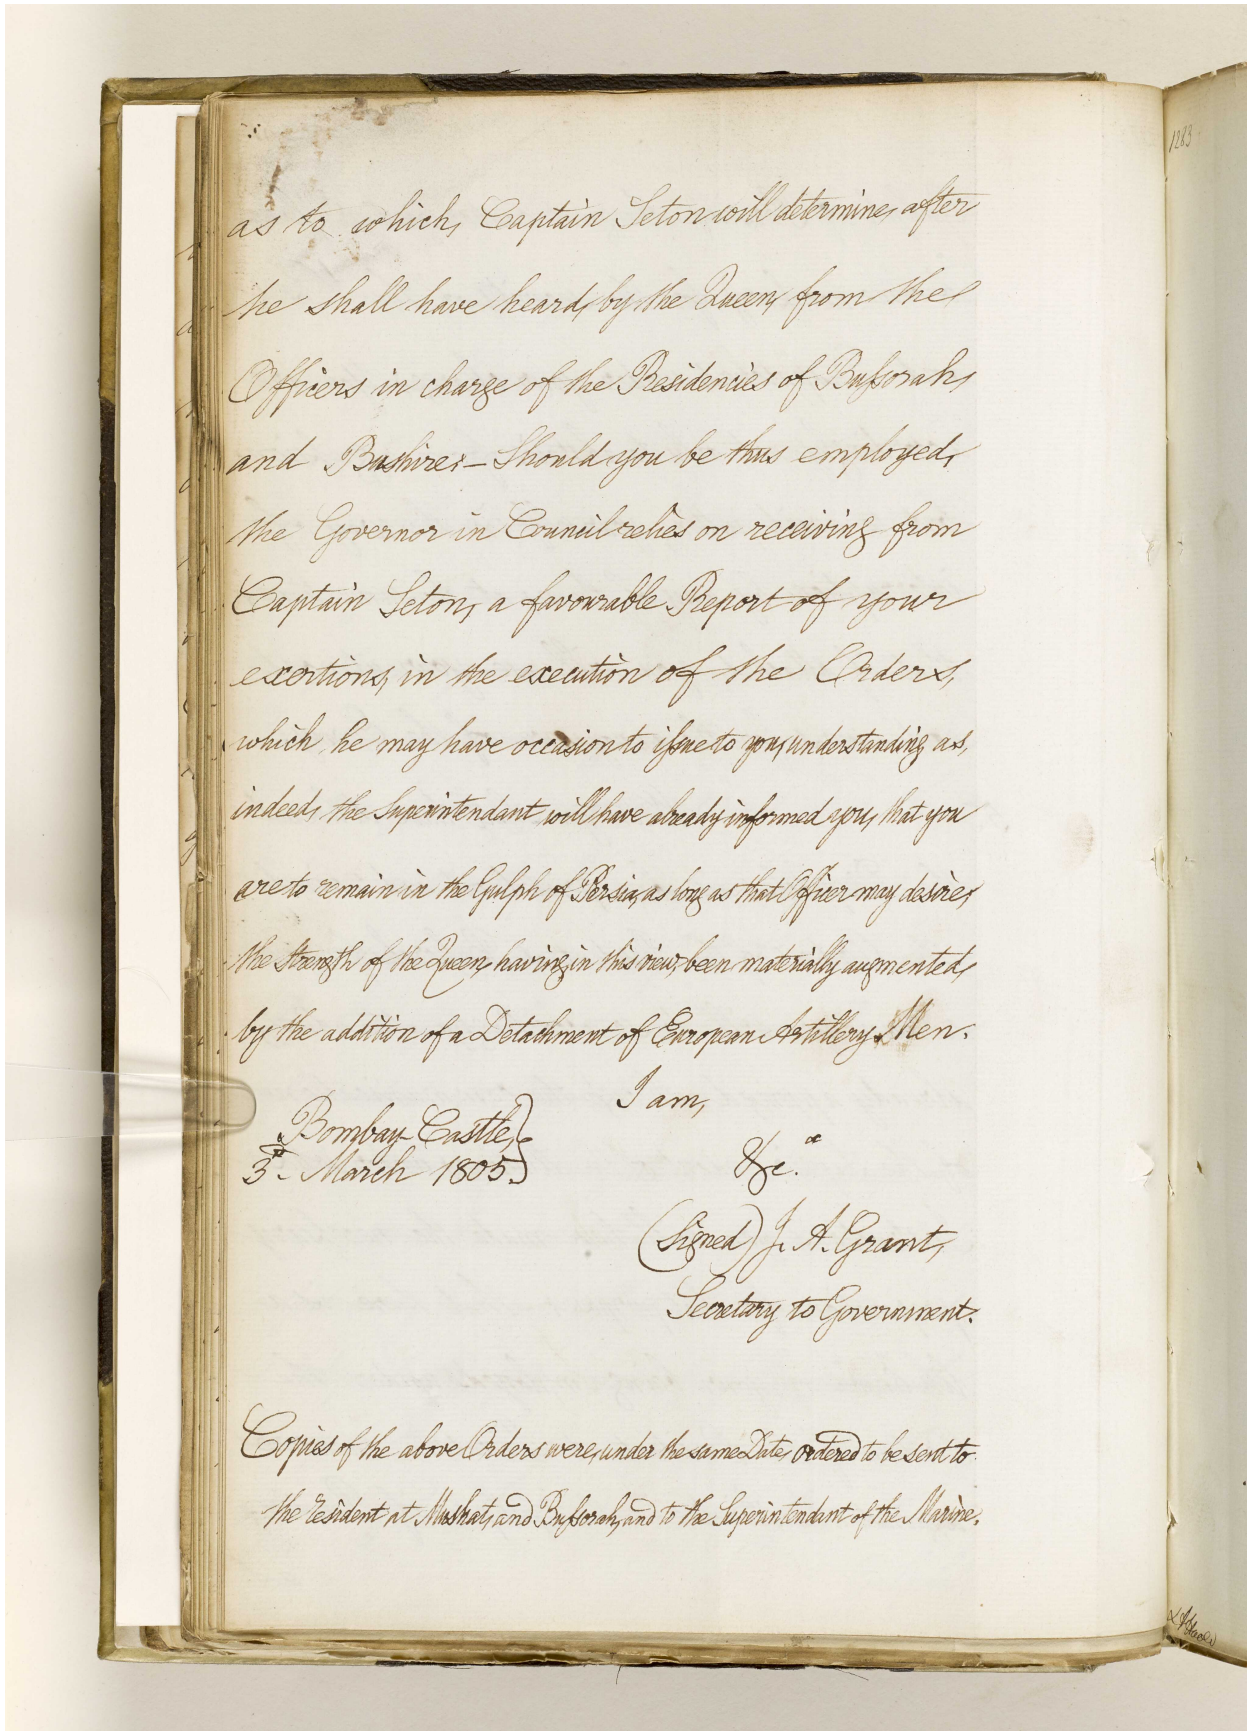 1283
as to which, Captain Seton will determine, after
he shall have heard, by the Queen, from the
Officers in charge of the Residencies of Bussorah,
and Bushire:— Should you be thus employed,
the Governor in Council relies on receiving from
Captain Seton, a favourable Report of your
exertions, in the execution of the Orders,
which he may have occasion to issue to you, understanding as,
indeed, the Superintendant will have already informed you, that you
are to remain in the Gulph of Persia, as long as that Officer may desire,
the Strength of the Queen, having, in this view, been materially augmented,
by the addition of a Detachment of European Artillery Men.
I am,
Bombay Castle,
3d. March 1805.
&c.a
(Signed) J. A. Grant,
Secretary to Government.
Copies of the above Orders were, under the same Date, ordered to be sent to
the resident at Muskat, and Bussorah, and to the Superintendant of the Marine.